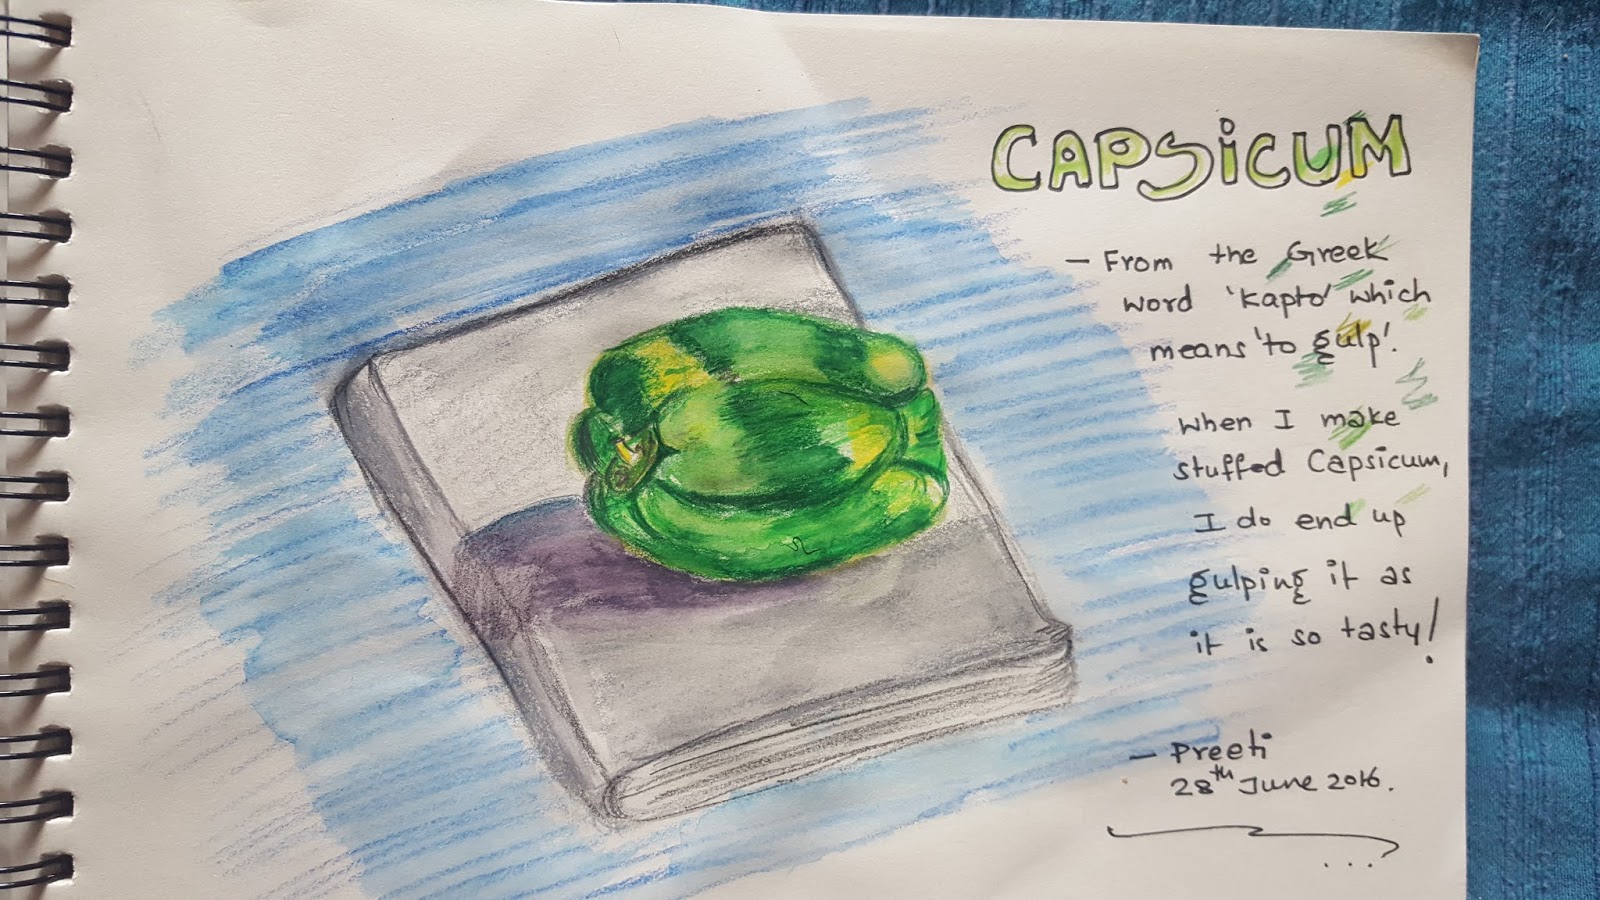 CAPSiCUM
– From the Greek
word 'Kapto' which
means 'to gulp'.
When I make
stuffed Capsicum,
I do end up
gulping it as
it is so tasty!
– Preeti
28th June 2016.